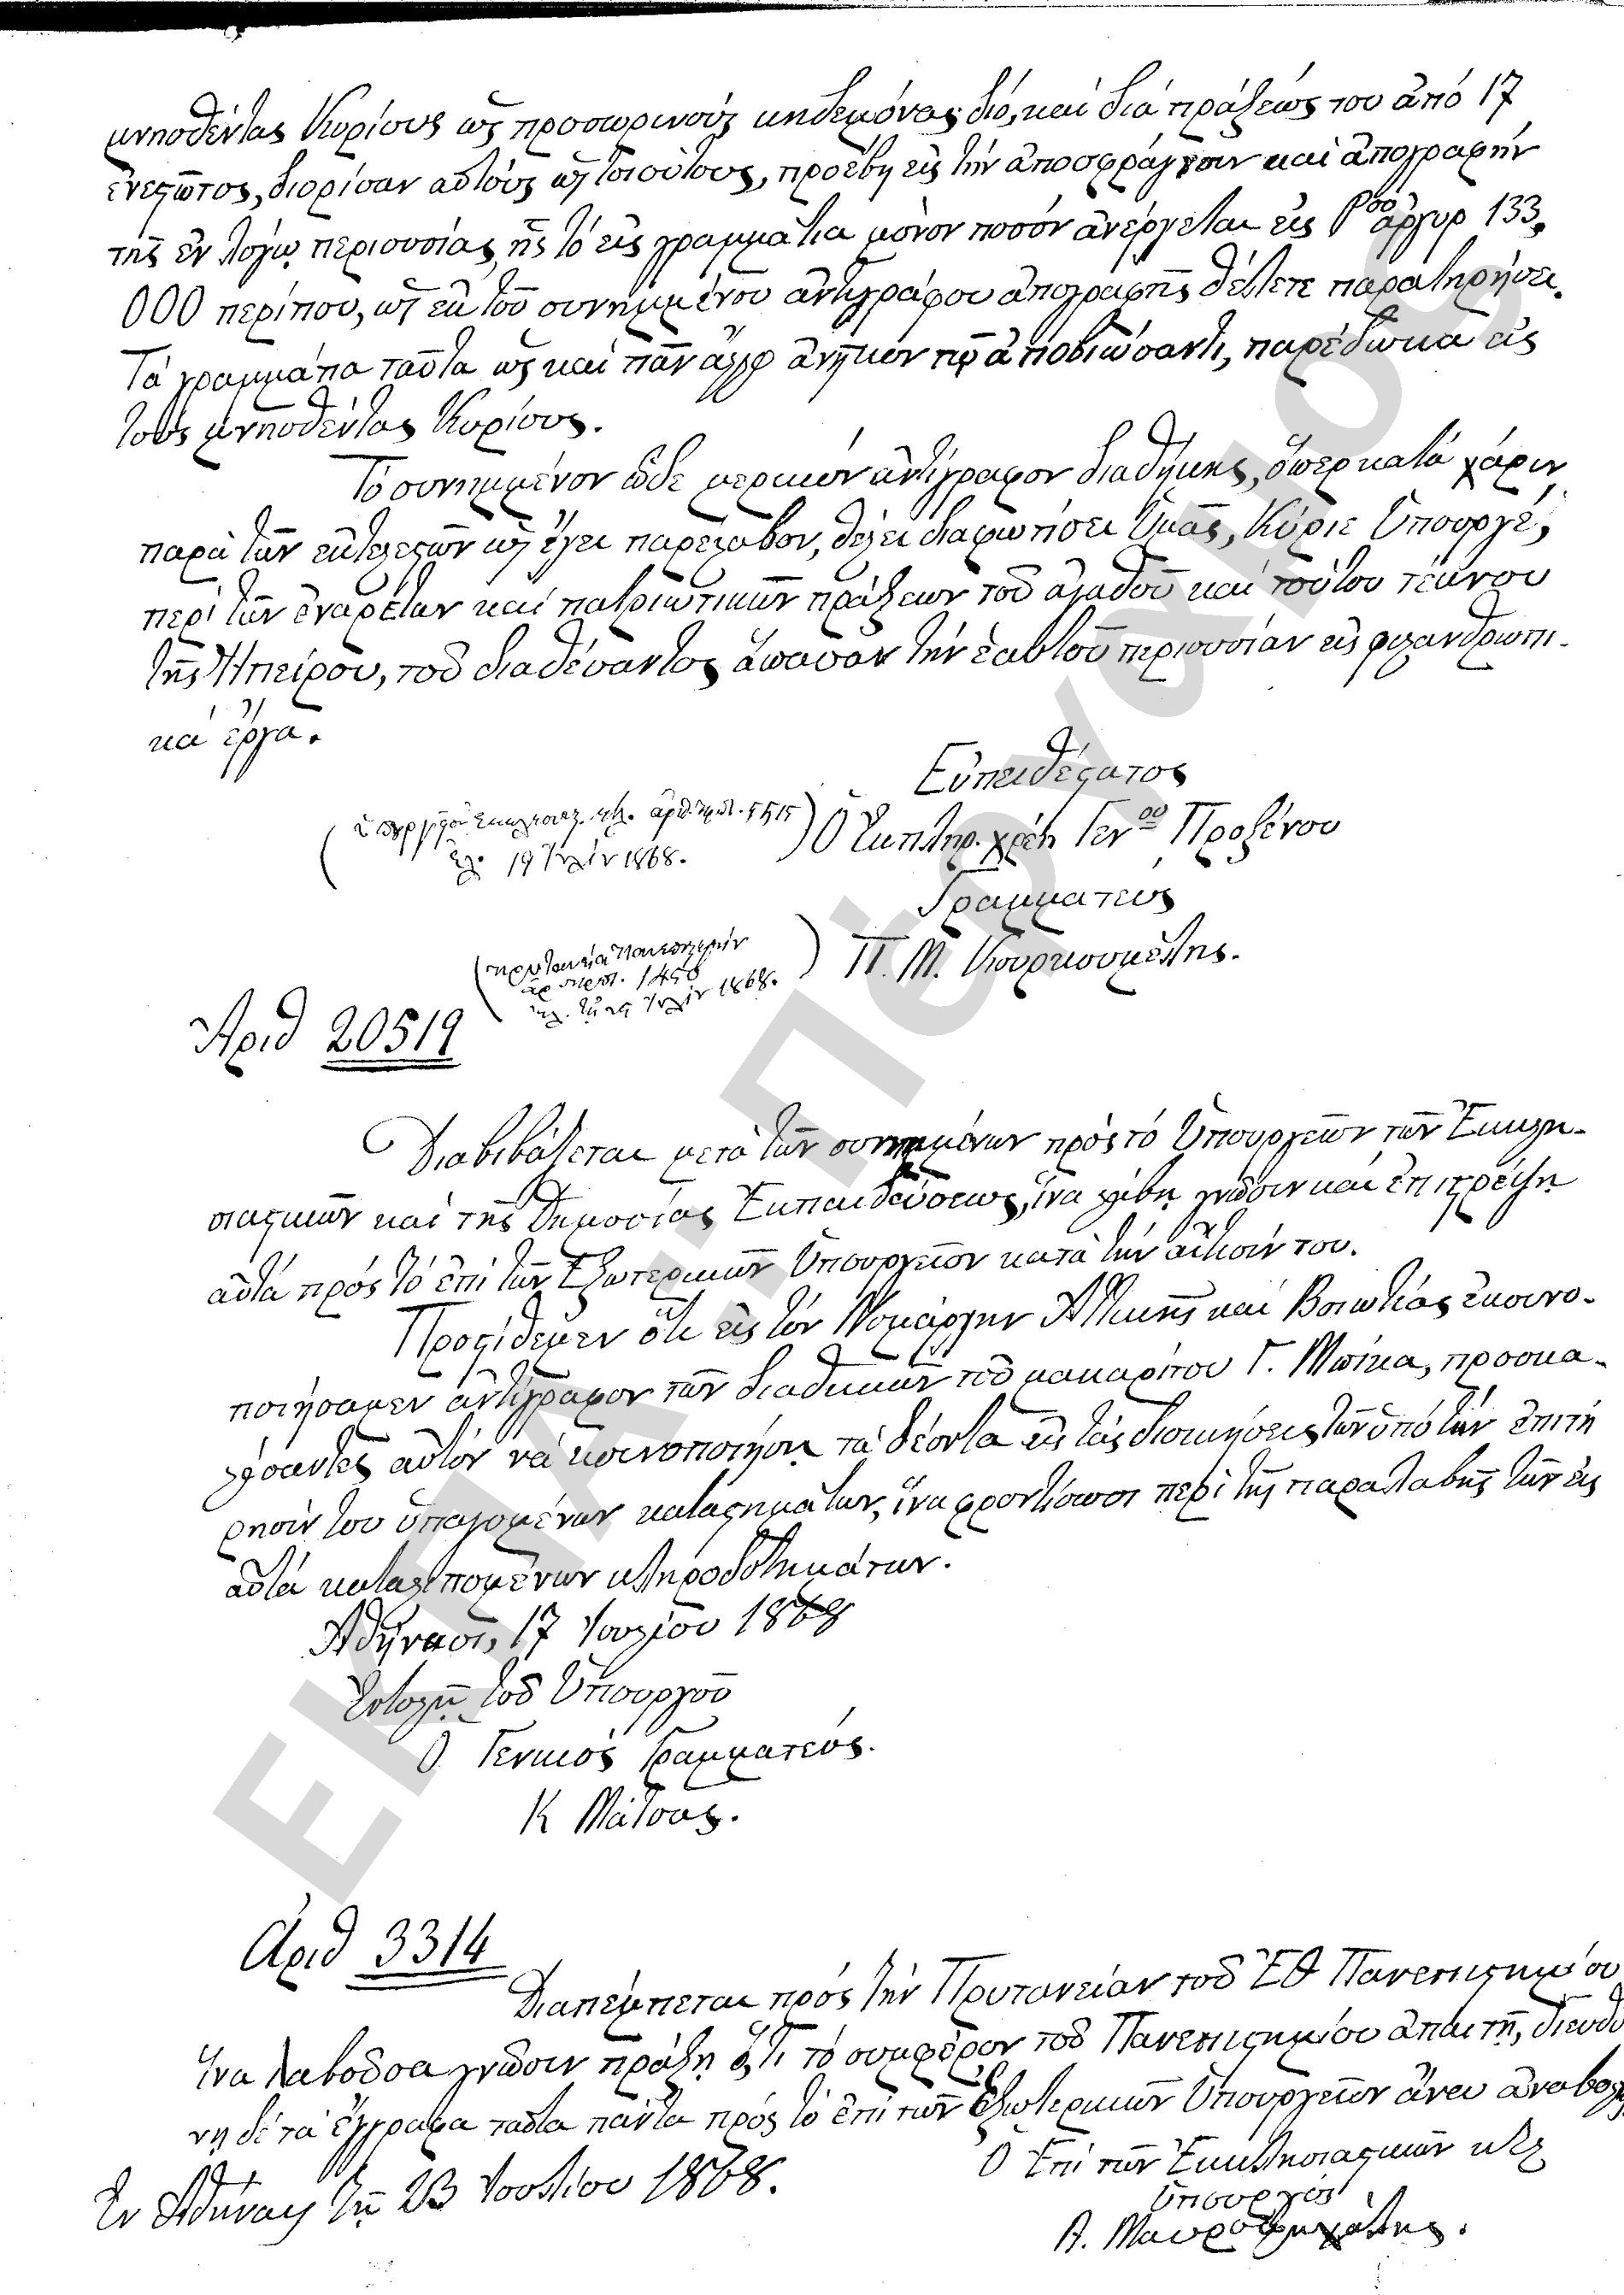 μνησθέντας Κυρίους ὡς προσωρινούς κηδεμόνας διό, καί διά πράξεώς του ἀπό 17
ἐνεστῶτος, διορίσαν αὐτούς ὡς τοιούτους, προέβη εἰς τήν ἀποσφράγισιν καί ἀπογραφήν
τῆς ἐν λόγῳ περιουσίας, ἧς τό εἰς γραμμάτια μόνον ποσόν ἀνέρχεται εἰς ἀργυρ 133,
000 περίπου, ὡς ἐκ τοῦ συνημμένου ἀντιγράφου ἀπογραφῆς θέλετε παρατηρήσει.
Τά γραμμάτια ταῦτα ὡς καί πᾶν ἄλλο ἀνῆκον τῷ ἀποβιώσαντι, παρέδωκα εἰς
τούς μνησθέντας Κυρίους.
Τό συνημμένον ὧδε μερικόν ἀντίγραφον διαθήκης, ὅπερ κατά χάριν
παρά τῶν ἐκτελεστῶν ὡς ἔγει παρέλαβον, θέλει διαφωτίσει Ὑμᾶς, Κύριε Ὑπουργέ,
περί τῶν ἐναρέτων καί πατριωτικῶν πράξεων τοῦ ἀγαθοῦ καί τούτου τέκνου
τῆς Ἠπείρου, τοῦ διαθέσαντος ἅπασαν τήν ἑαυτοῦ περιουσίαν εἰς φιλανθρωπι-
κά ἔργα.
Εὐπειθέστατος
Ὁ Ἐκπληρ. χρέη Γεν<sup>οῦ</sup> Προξένου
19 Ἰουλίου 1868.
Γραμματεύς
Π. Μ. Κουρκουμέλης.
1868.
Ἀριθ 20519
Διαβιβάζεται μετά τῶν συνημμένων πρός τό Ὑπουργεῖον τῶν Ἐκκλη-
σιαστικῶν καί τῆς Δημοσίας Ἐκπαιδεύσεως, ἵνα λάβῃ γνῶσιν καί ἐπιστρέψῃ
αὐτά πρός τό ἐπί τῶν Ἐξωτερικῶν Ὑπουργεῖον κατά τήν αἴτησίν του.
Προσθέτομεν ὅτι εἰς τόν Νομάρχην Ἀττικῆς καί Βοιωτίας ἐκοινο-
ποιήσαμεν ἀντίγραφον τῶν διαθηκῶν τοῦ μακαρίτου Γ. Μπίκα, προσκα-
λέσαντες αὐτόν νά κοινοποιήσῃ τά δέοντα εἰς τάς διοικήσεις τῶν ὑπό τήν ἐπιτή
ρησίν του ὑπαγομένων καταστημάτων, ἵνα φροντίσωσι περί τῆς παραλαβῆς τῶν εἰς
αὐτά καταλειπομένων κληροδοτημάτων.
Ἀθήνῃσι, 17 Ἰουλίου 1868
Ἐντολῇ τοῦ Ὑπουργοῦ
Ὁ Γενικός Γραμματεύς.
Κ Μάτσας.
Ἀριθ 3314
Διαπέμπεται πρός τήν Πρυτανείαν τοῦ Ἐθ Πανεπιστημίου
ἵνα λαβοῦσα γνῶσιν πράξῃ ὅ,τι τό συμφέρον τοῦ Πανεπιστημίου ἀπαιτῇ, διευθύ
νῃ δέ τά ἔγγραφα ταῦτα πάντα πρός τό ἐπί τῶν Ἐξωτερικῶν Ὑπουργεῖον ἄνευ ἀναβολῆς
Ὁ Ἐπί τῶν Ἐκκλησιαστικῶν κτλ
Ἐν Ἀθήναις τῇ 23 Ἰουλίου 1868.
Ὑπουργός
Α. Μαυρομιχάλης.